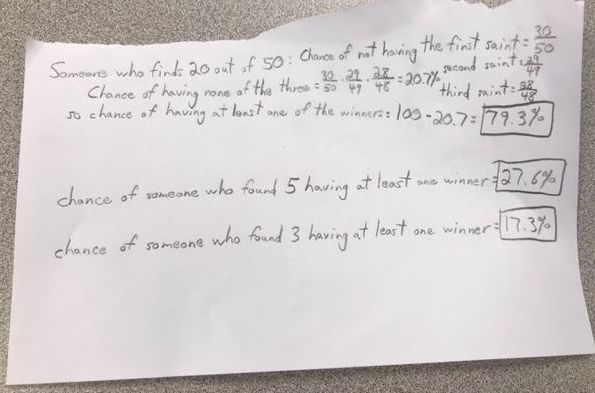 Someone who finds 20 out of 50: Chance of not having the first saint = 30/50
second saint: 29/49
Chance of having none of the three = 30/50 · 29/49 · 28/48 = 20.7%
third saint = 28/48
so chance of having at least one of the winners: 100 - 20.7 = 79.3%
chance of someone who found 5 having at least one winner = 27.6%
chance of someone who found 3 having at least one winner = 17.3%